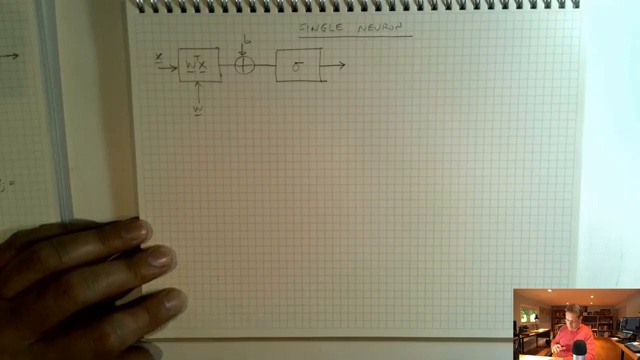 SINGLE NEURON
b
x
wᵀx
σ
w